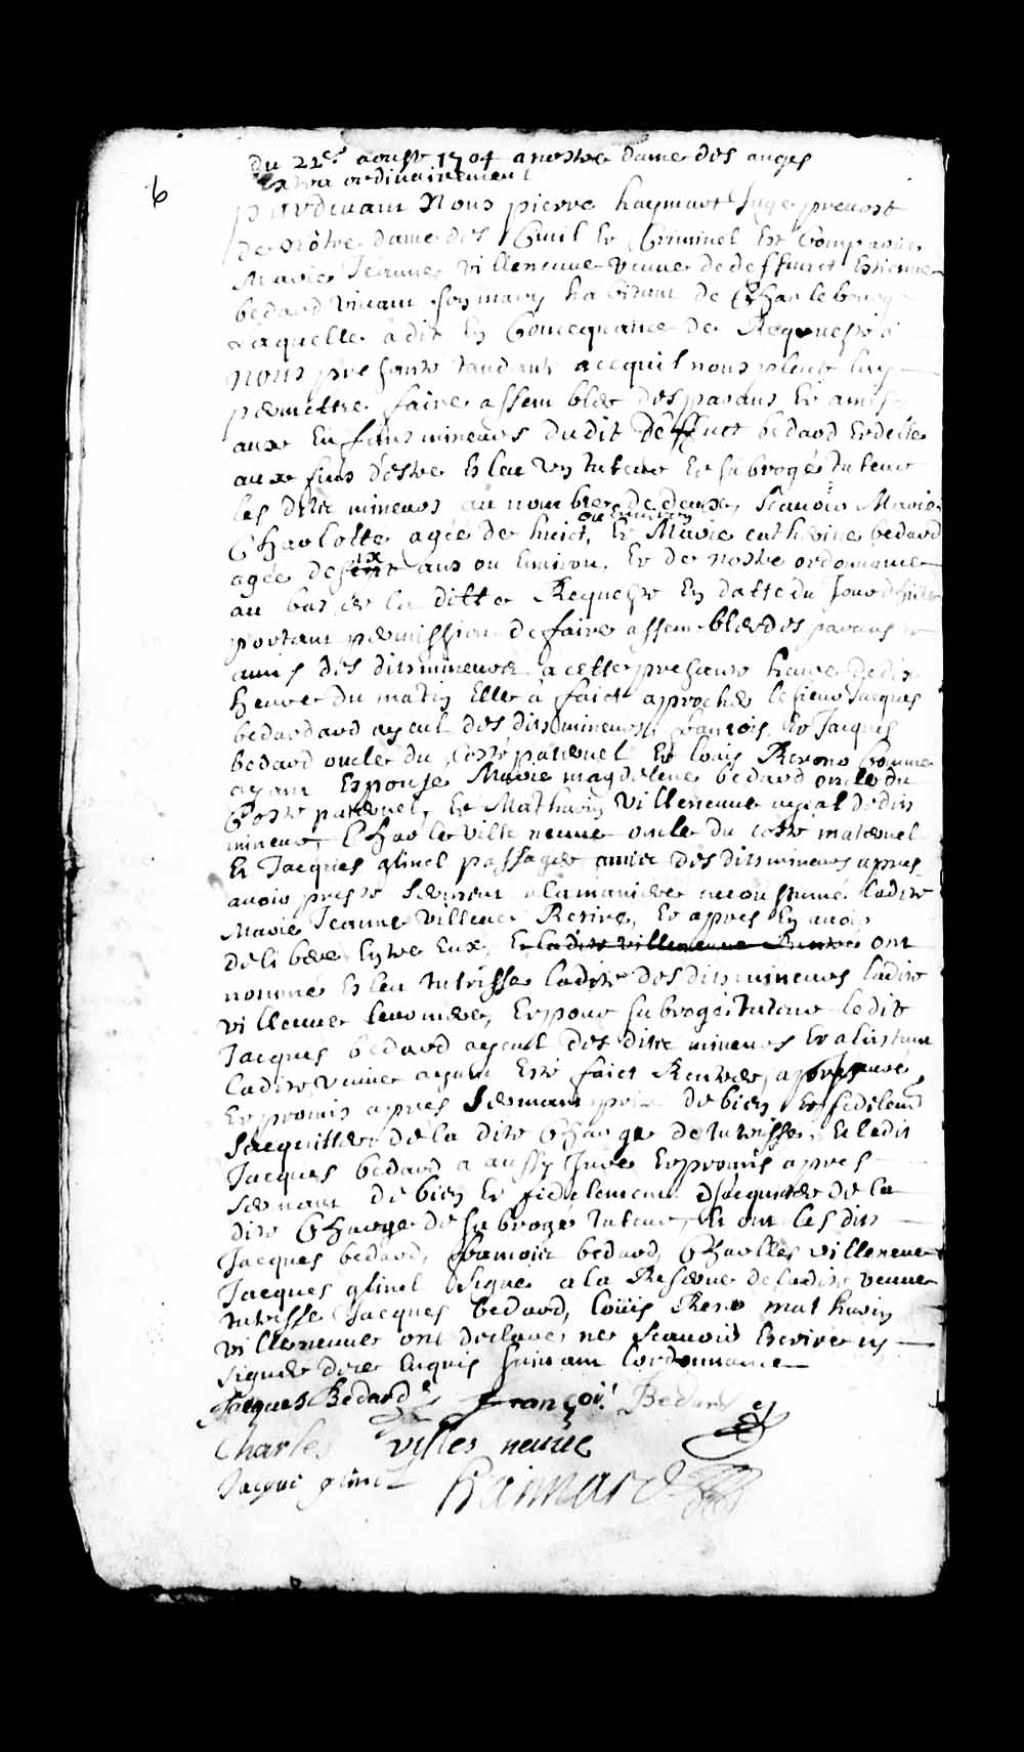 du 22e aoust 1704 a nostre dame des anges
Extra ordinairement
6
pardevant Nous pierre haymart Juge prevost
de Nôtre dame des Civil Et Criminel Est Comparue
Marie Jeanne villeneuve veuve de deffunct Estienne
bedard vivant son mary habitant de Charlebourg
Laquelle a dit En Consequance de Requeste a
nous presante tandante a ce quil nous pleut luy
permettre faire assembler des parans Et amis
aux Enfans mineurs dudit Deffunct bedard Et delle
aux fins d'estre Esleu un tuteur Et subrogé tuteur
les dits mineurs au nombre de deux, scavoir Marie
ou Environ
Charlotte agée de huict, Et Marie catherine bedard
agée de six ans ou Environ. Et de nostre ordonnance
au bas de la ditte Requeste En datte du Jour d'hier
portant permission de faire assembler des parans
amis des dits mineurs a cette presante heure de dix
heure du matin Elle à faict approcher le sieur Jacques
bedardard ayeul des dits mineurs, françois Et Jacques
bedard oncle du Costé paternel Et louis Renono Comme
ayant Espousé Marie magdeleine bedard oncle du
Costé paternel, Et Mathurin Villeneuve ayeal desdits
mineur, Charles ville neuve oncle du costé maternel
Et Jacques glinel passager amis des dits mineurs apres
avoir preste serment a la maniere accoustumé ladite
Marie Jeanne villeneuve Retiré, Et apres En avoir
délibéré Entre Eux, Et ladite villeneuve Rentré ont
nommé Esleu tutrisse ladite des dits mineurs ladite
villeneuve leur mere, Et pour subrogé Tuteur ledit
Jacques bedard ayeul des dits mineurs Et a linstant
ladite veuve ayant Esté faict Rentrer, a
Et promis apres serment de bien Et fidelement
sacquitter de la dite Charge de tutrisse, Et ledit
Jacques bedard a aussy Juré Et promis apres
serment de bien Et fidelement d'sacquitter de la
dite Charge de subrogé tuteur, Et ont les dits
Jacques bedard, francois bedard, Charlles villeneuve
Jacques glinel signé a la Reserve de ladite veuve
tutrisse Jacques bedard, loüis Reno mathurin
villeneuve ont declaré ne scavoir Escrire ny
signer de ce Enquis suivant l'ordonnance
Jacques Bedard françoi Bedard
Charles villes neuve
Jaque glinel haimard